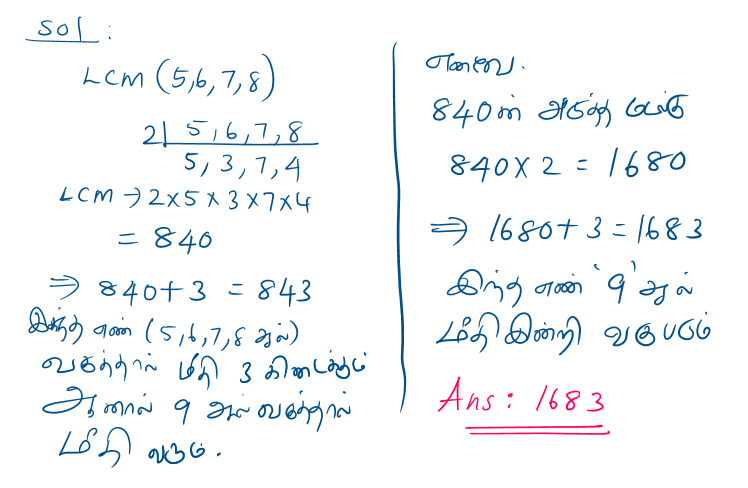 Sol :
LCM (5,6,7,8)
2 | 5,6,7,8
5,3,7,4
LCM → 2×5×3×7×4
= 840
⇒ 840+3 = 843
இந்த எண் (5,6,7,8 ஆல்)
வகுத்தால் மீதி 3 கிடைக்கும்
ஆனால் 9 ஆல் வகுத்தால்
மீதி வரும்.
எனவே.
840ன் அடுத்த மடங்கு
840×2 = 1680
⇒ 1680+3=1683
இந்த எண் '9' ஆல்
மீதி இன்றி வகுபடும்
Ans: 1683